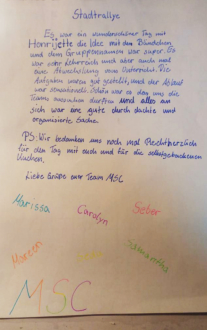 Stadtrallye
Es war ein wunderschöner Tag mit
Henrijette die Idee mit den Bändchen
und dem Gruppennamen war super. Es
war sehr lehrreich und aber auch
eine Abwechslung vom Unterricht. Die
Aufgaben waren gut gestellt, und der Ablauf
war sensationell. Schön war es den uns die
Teams aussuchen durften und alles an
sich war eine gute durch dachte und
organisierte Sache.
PS: Wir bedanken uns noch mal Rechtherzlich
für den Tag mit euch und für die selbstgebackenen
Kuchen.
Liebe Grüße euer Team MSC
Marissa Carolyn
MSC